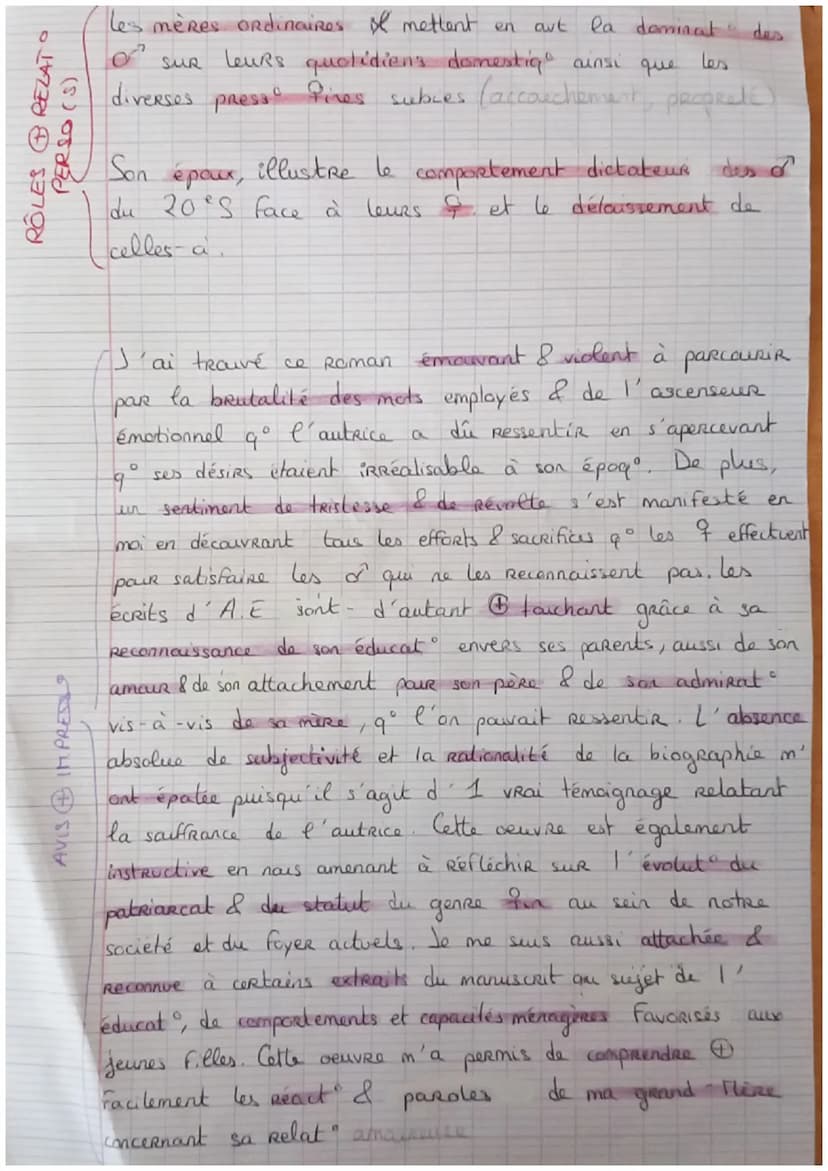 RÔLES ⊕ RELAT°
PERSO (S)
les mères ordinaires mettent en avt la dominat° des
♂ sur leurs quotidiens domestiq° ainsi que les
diverses press° subies (accouchement, propreté)
Son époux, illustre le comportement dictateur des ♂
du 20°S face à leurs ♀ et le délaissement de
celles-ci.
AVIS ⊕ IMPRESS°
J'ai trouvé ce roman émouvant & violent à parcourir
par la brutalité des mots employés & de l'ascenseur
émotionnel q° l'autrice a dû ressentir en s'apercevant
q° ses désirs étaient irréalisable à son époq°. De plus,
un sentiment de tristesse & de révolte s'est manifesté en
moi en découvrant tous les efforts & sacrifices q° les ♀ effectuent
pour satisfaire les ♂ qui ne les reconnaissent pas. les
écrits d'A.E sont - d'autant ⊕ touchant grâce à sa
reconnaissance de son éducat° envers ses parents, aussi de son
amour & de son attachement pour son père & de son admirat°
vis-à-vis de sa mère, q° l'on pouvait ressentir. L'absence
absolue de subjectivité et la rationalité de la biographie m'
ont épatée puisqu'il s'agit d'1 vrai témoignage relatant
la souffrance de l'autrice. Cette oeuvre est également
instructive en nous amenant à réfléchir sur l'évolut° du
patriarcat & du statut du genre au sein de notre
société et du foyer actuels. Je me suis aussi attachée &
reconnue à certains extraits du manuscrit au sujet de l'
éducat°, de comportements et capacités ménagères favorisés aux
jeunes filles. Cette oeuvre m'a permis de comprendre ⊕
facilement les réact° & paroles de ma grand-mère
concernant sa relat° amoureuse